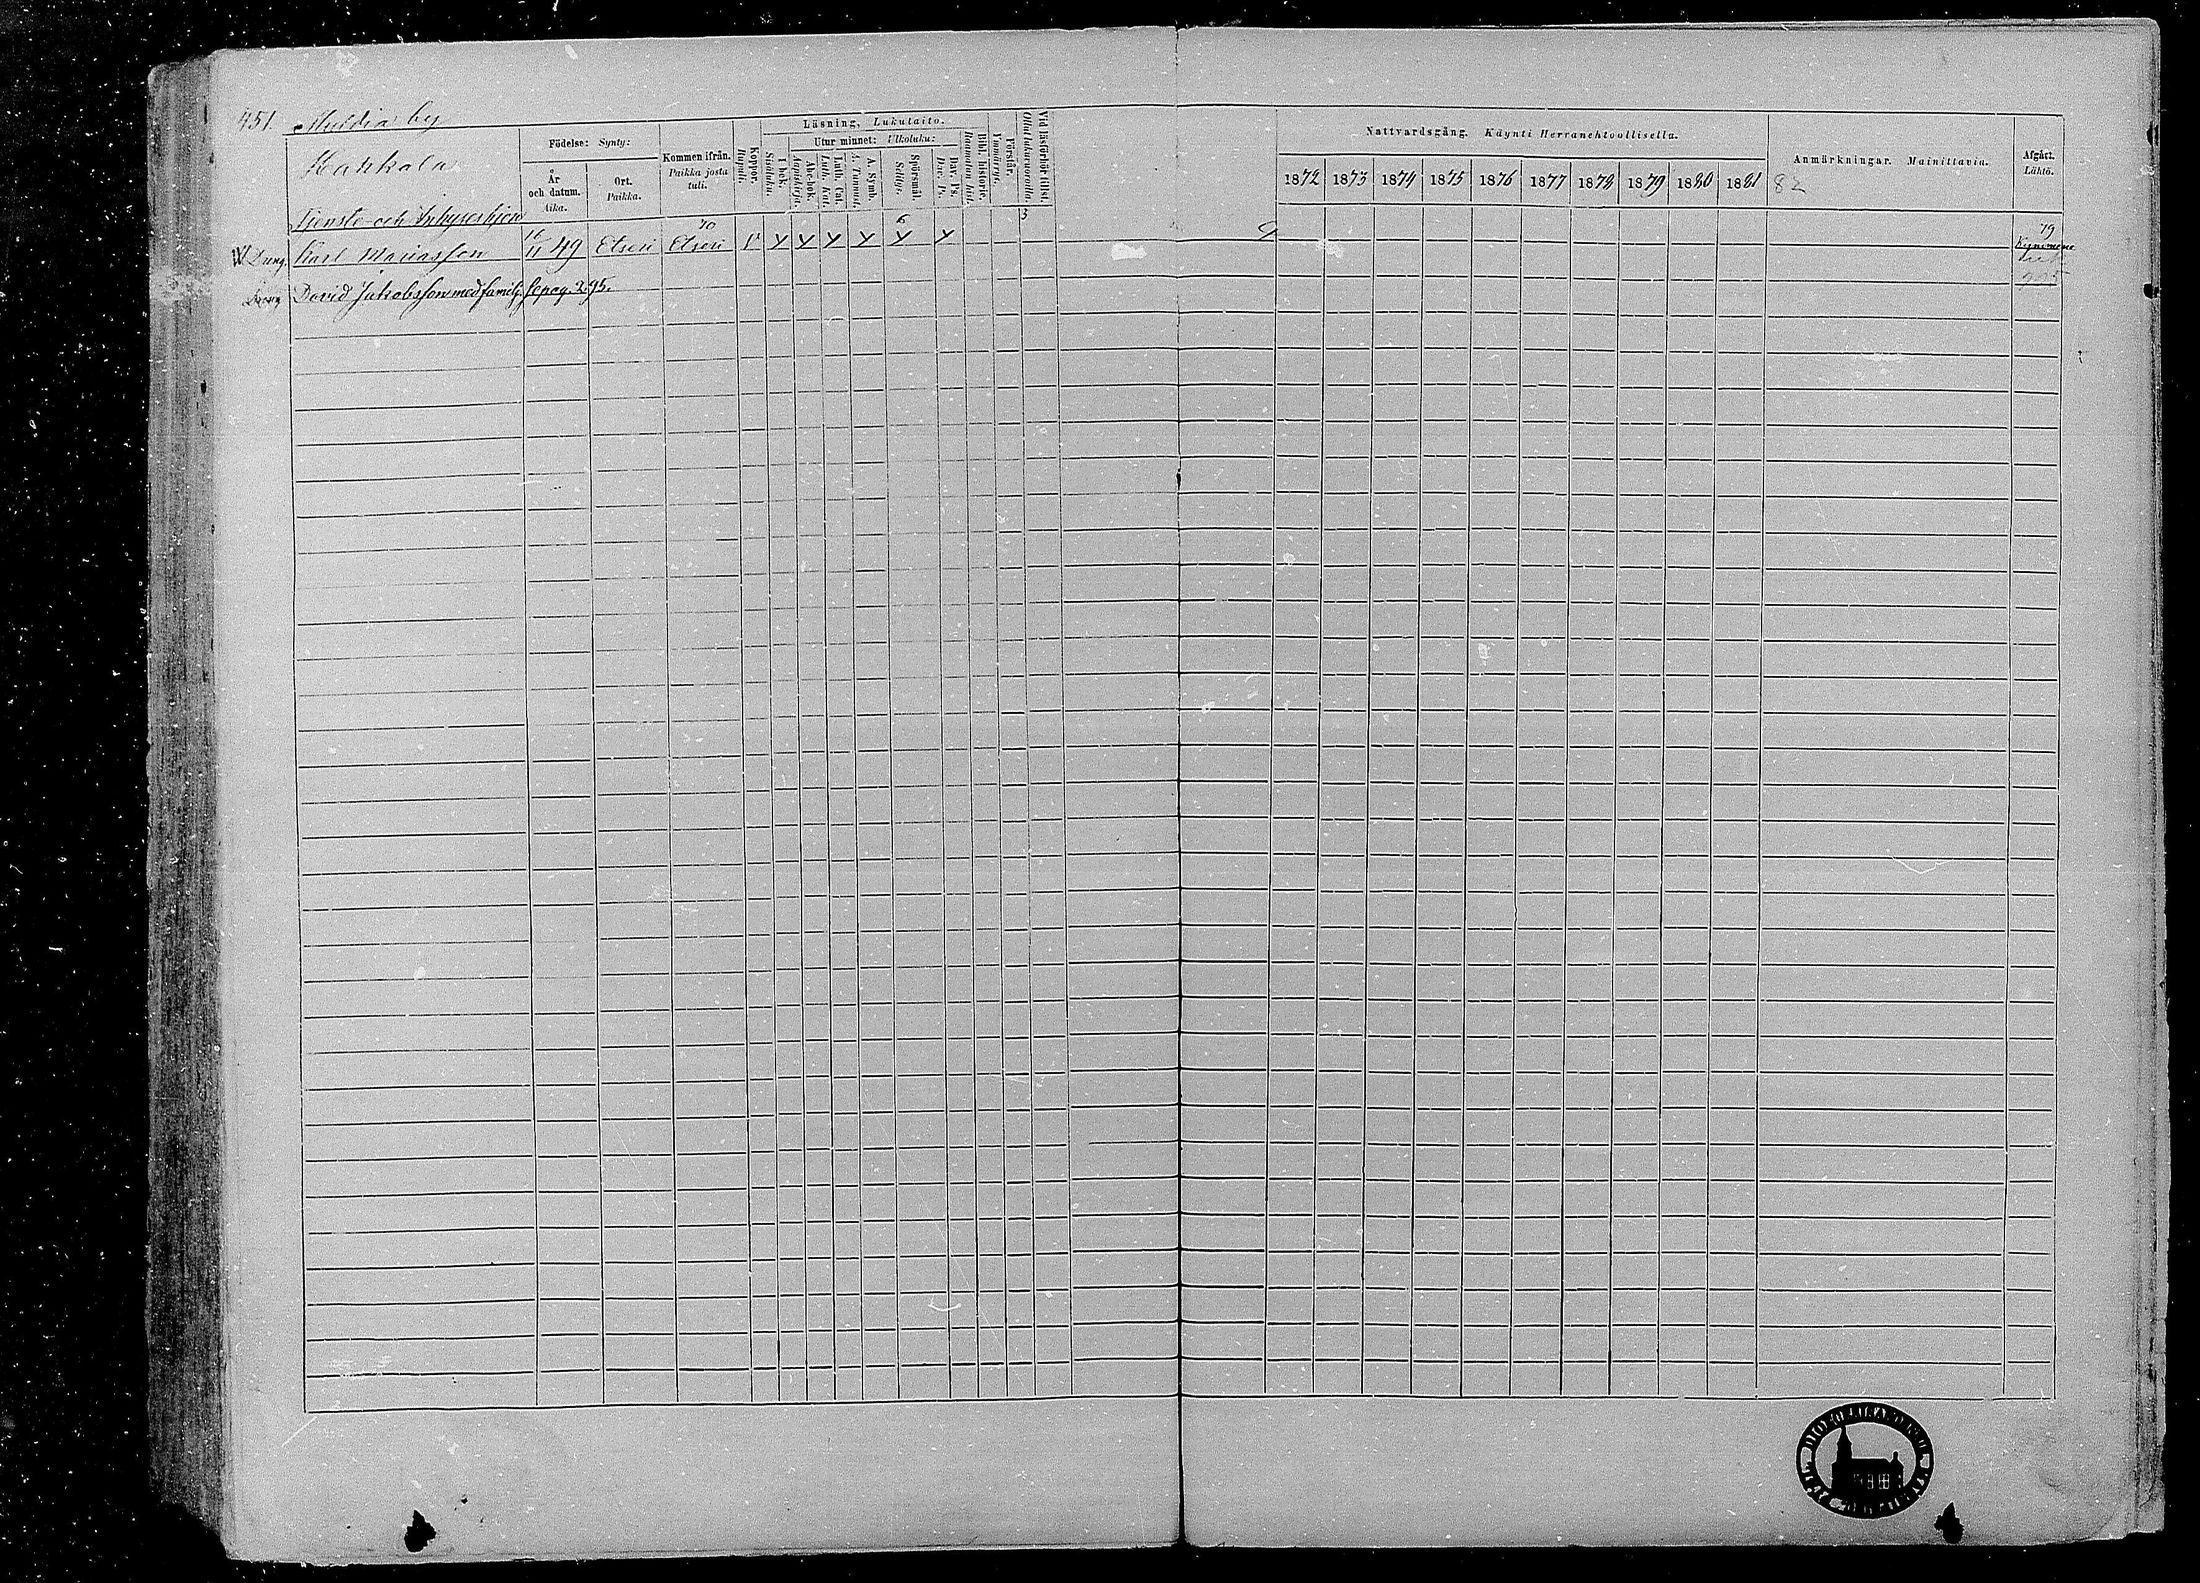 451. Multia by
Hankala
Födelse: Synty:
År och datum. Aika.
Ort. Paikka.
Kommen ifrån. Paikka josta tuli.
Koppor. Rupuli.
Läsning, Lukutaito.
I bok. Sisäluku.
Utur minnet: Ulkoluku:
Abc-bok. Aapiskirja.
Luth. Cat. Luth. Kat.
A. Symb. A. Tunnust.
Spörsmål. Selitys.
Dav. Ps. Dav. Ps.
Bibl. historie. Raamatun hist.
Förstår. Ymmärrys.
Vid läsförhör tillst. Ollut lukuvuoroilla.
Nattvardsgång. Käynti Herranehtoollisella.
1872 1873 1874 1875 1876 1877 1878 1879 1880 1881
Anmärkningar. Mainittavia.
82
Afgått. Lähtö.
Tjenste- och Inhyseshjon 6 3
Dräng. Karl Mariasson 16/11 49 Etseri 70 Etseri v y y y y y y 79
Dräng David Jakobsson med familj. se pag. 295.